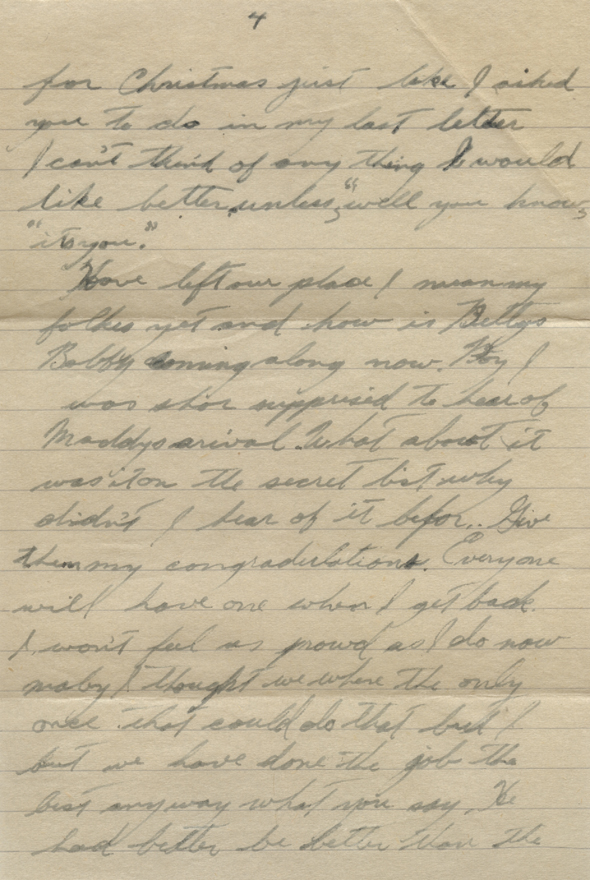 4
for Christmas just like I asked
you to do in my last letter
I can't think of any thing I would
like better, unless, "well you know,
"it's you."
Have left our place I mean my
folkes yet and how is Bettys
Bobby coming along now. Boy I
was shor supprised to hear of
Maddys arival. What about it
was it on the secret list why
didn't I hear of it befor.. Give
them my congradulations. Everyone
will have one when I get back.
I won't feel as prowd as I do now
maby I thought we where the only
once that could do that but I
but we have done the job the
best anyway what you say, He
had better be better than the